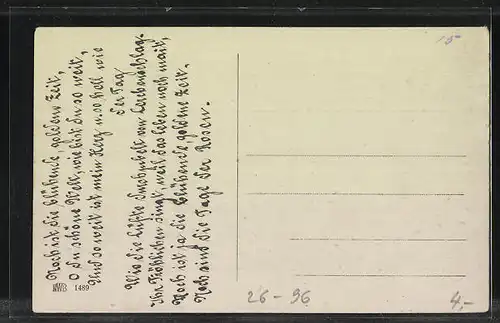 Noch ist die blühende goldene Zeit,
O du schöne Welt, wie bist du so weit,
Und so weit ist mein Herz u. so voll wie
der Tag
Wie die Lüfte durchjubelt von Lerchenschlag.
Ihr Fröhlichen singt, weil das Leben noch mait,
Noch ist ja die blühende, goldene Zeit,
Noch sind die Tage der Rosen.
NWB 1489
15
26-96
4,-